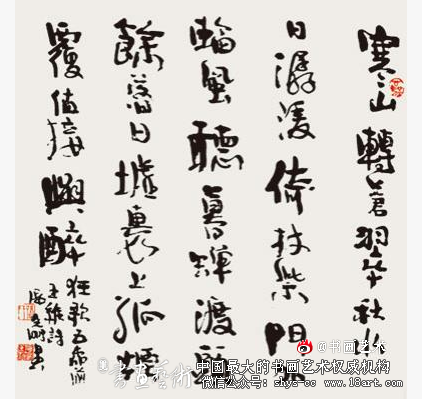 寒山轉蒼翠秋水
日潺湲倚杖柴門外
臨風聽暮蟬渡頭
餘落日墟裏上孤煙
覆值接輿醉
狂歌五柳前
王維詩
@书画艺术
中国最大的书画艺术权威机构
微信公众号: shys-cc www.18art.com